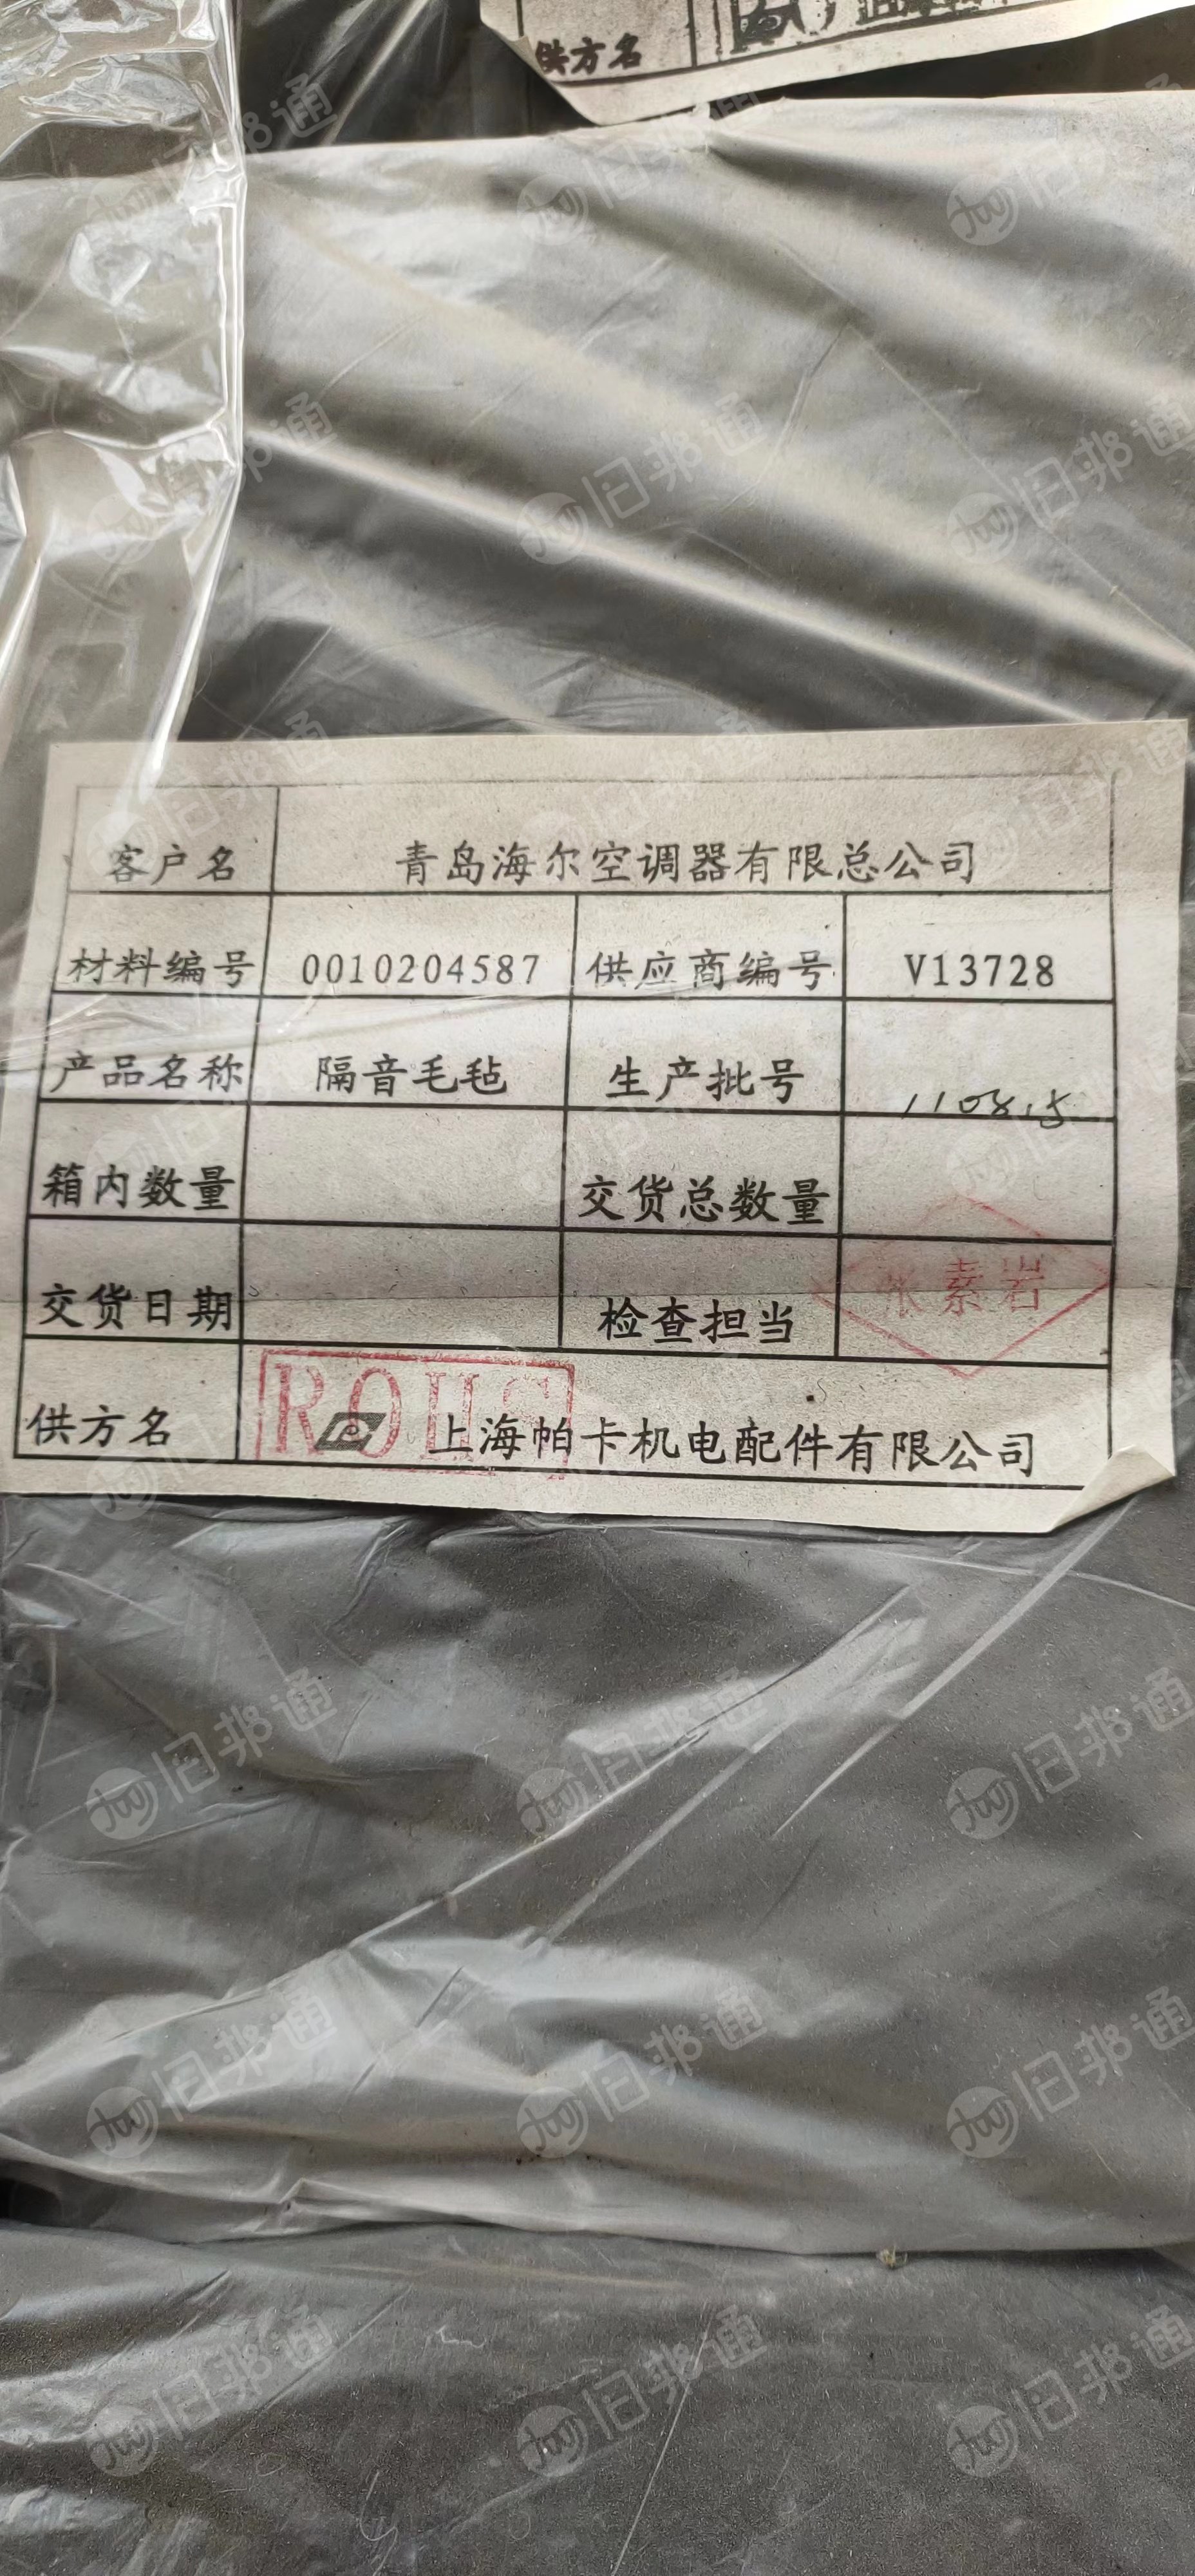 供方名
客户名 青岛海尔空调器有限总公司
材料编号 0010204587 供应商编号 V13728
产品名称 隔音毛毡 生产批号 1108.5
箱内数量 交货总数量
交货日期 检查担当 张素岩
供方名 ROHS 上海帕卡机电配件有限公司
旧邦通